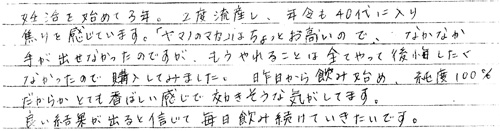 妊活を始めて3年。2度流産し、年令も40代に入り
焦りを感じています。「ヤマノのマカ」はちょっとお高いので、なかなか
手が出せなかったのですが、もうやれることは全てやって後悔したく
なかったので購入してみました。昨日から飲み始め、純度100%
だからかとても香ばしい感じで効きそうな気がしてます。
良い結果が出ると信じて毎日飲み続けていきたいです。